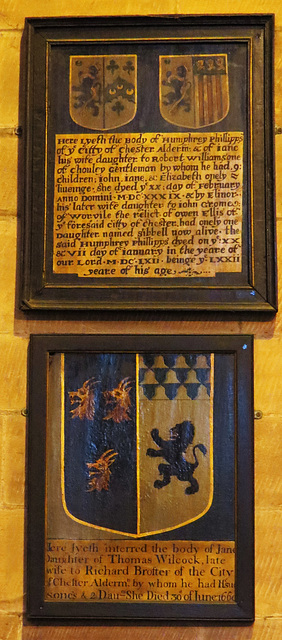 Here Lyeth the Body of Humphrey Phillipps
of yͤ Citty of Chester Alderm: & of Iane
his wife daughter to Robert Williamsone
of Chouley gentleman by whom he had 9:
children; Iohn, Iane, & Elizabeth onely
she dyed yͤ xx: day of February
Anno Domini · M·DC·XXXIX · & by Elinor
his later wife daughter to John
of Worvile the relict of Owen Ellis of
yͤ foresaid Citty of Chester, had onely one
Daughter named Sibbell now alive. the
said Humphrey Phillipps dyed on yͤ XX
& VII day of Ianuary in the yeare of
our Lord · M·DC·LXII · beinge yͤ LXXII
yeare of his age
Here lyeth interred the body of Jane
Daughter of Thomas Wilcock, late
wife to Richard Broster of the City
of Chester Alderm: by whom he had
sones & 2 Dau: She Died 30 of June